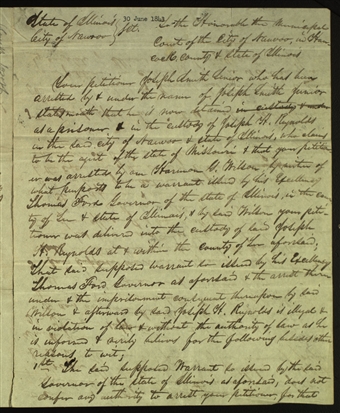 State of Illinois
City of Nauvoo
Sct.
30 June 1843
To the Honorable the Municipal
Court of the City of Nauvoo, in Han
cock County & State of Illinois
Your petitioner Joseph Smith Senior who has been
arrested by & under the name of Joseph Smith Junior
states that he is now detained in custody
as a prisoner, & in the custody of Joseph H. Reynolds
in the said city of Nauvoo & State of Illinois, who claims
to be the agent of the State of Missouri & that your petition
er was arrested by one Harmon T. Wilson by virtue of
what purports to be a warrant issued by his Excellency
Thomas Ford Governor of the State of Illinois, in the coun
ty of Lee & State of Illinois, & by said Wilson your peti
tioner was delivered into the custody of said Joseph
H. Reynolds at & within the County of Lee aforesaid,
That said supposed warrant so issued by his Excellency
Thomas Ford Governor as aforesaid & the arrest there
under & the imprisonment consequent thereupon by said
Wilson & afterward by said Joseph H. Reynolds is illegal &
in violation of law & without the authority of law as he
is informed & verily believes for the following besides other
reasons to wit,
1st The said supposed Warrant so issued by the said
Governor of the State of Illinois as aforesaid, does not
confer any authority to arrest your petitioner for that